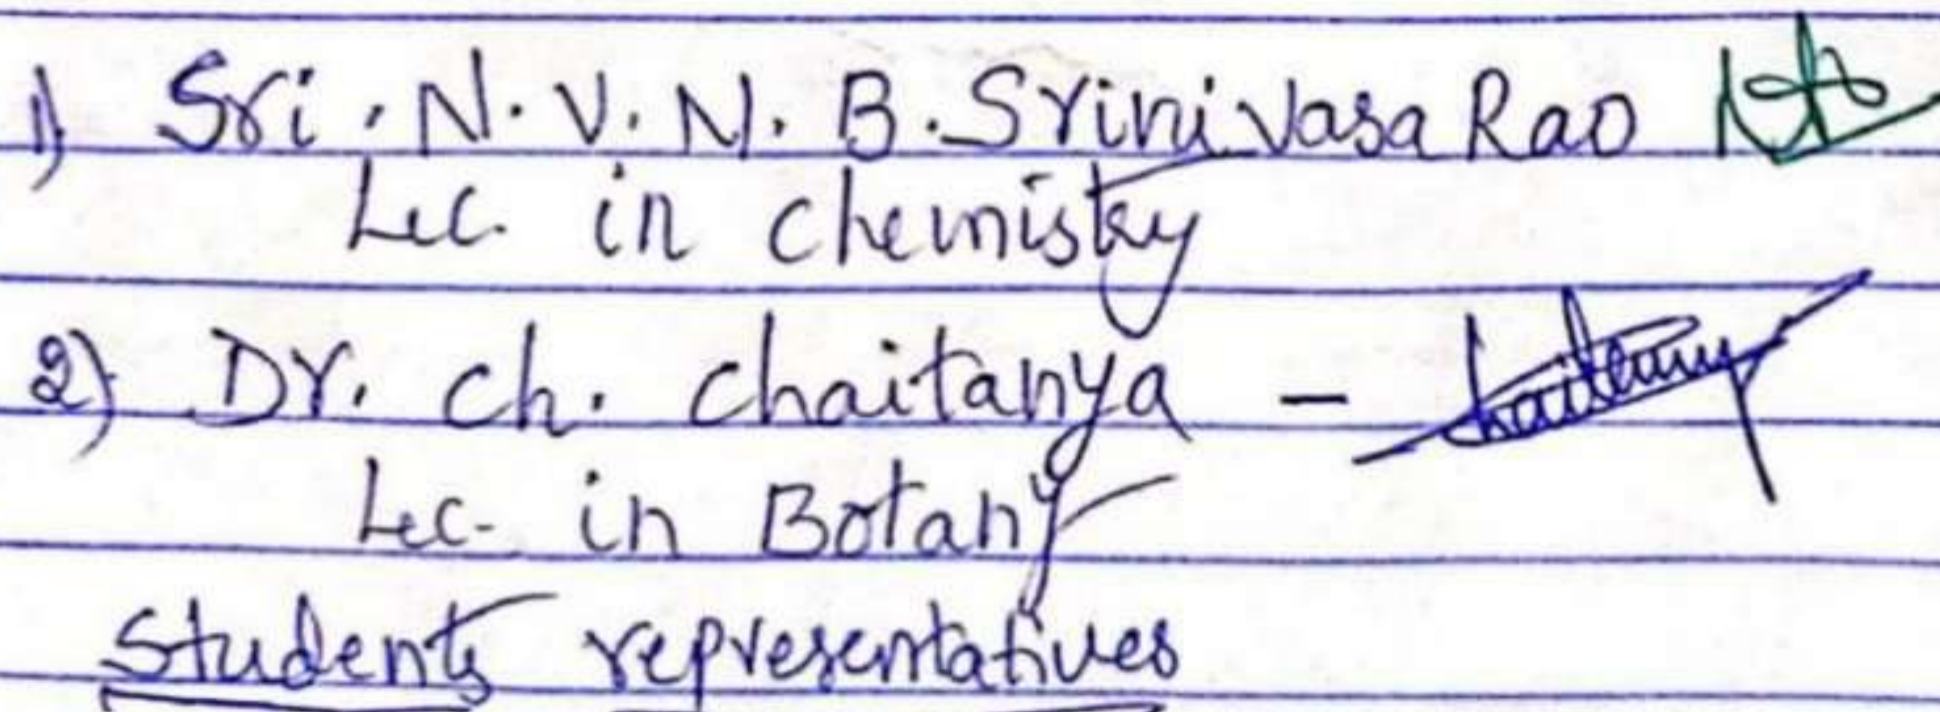 1) Sri. N. V. N. B. Srinivasa Rao
Lec. in chemistry
2) Dr. Ch. Chaitanya -
Lec. in Botany
Students representatives